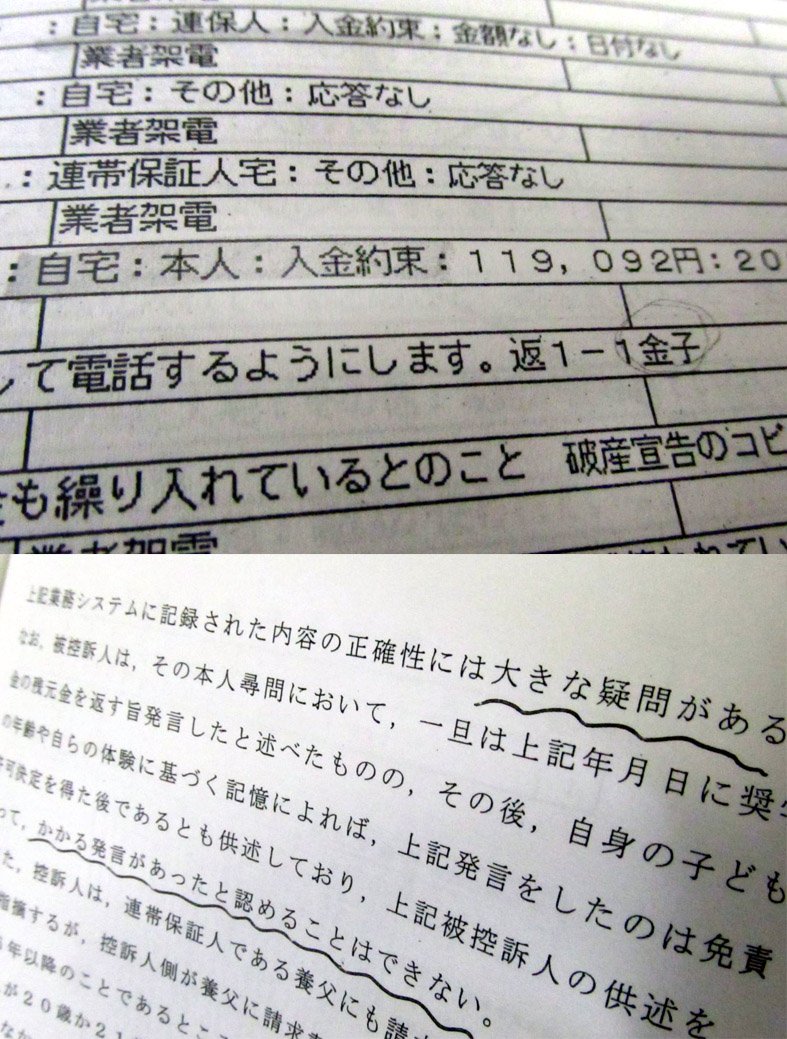 ：自宅：連保人：入金約束：金額なし：日付なし
業者架電
：自宅：その他：応答なし
業者架電
：連帯保証人宅：その他：応答なし
業者架電
：自宅：本人：入金約束：１１９，０９２円：２０
して電話するようにします。返１－１金子
も繰り入れているとのこと　破産宣告のコピ
業者架電
上記業務システムに記録された内容の正確性には大きな疑問がある
なお，被控訴人は，その本人尋問において，一旦は上記年月日に奨学
金の残元金を返す旨発言したと述べたものの，その後，自身の子ども
の年齢や自らの体験に基づく記憶によれば，上記発言をしたのは免責
許可決定を得た後であるとも供述しており，上記被控訴人の供述を
って，かかる発言があったと認めることはできない。
た，控訴人は，連帯保証人である養父にも請求
指摘するが，控訴人側が養父に請求
年以降のことであるところ
が２０歳か２１